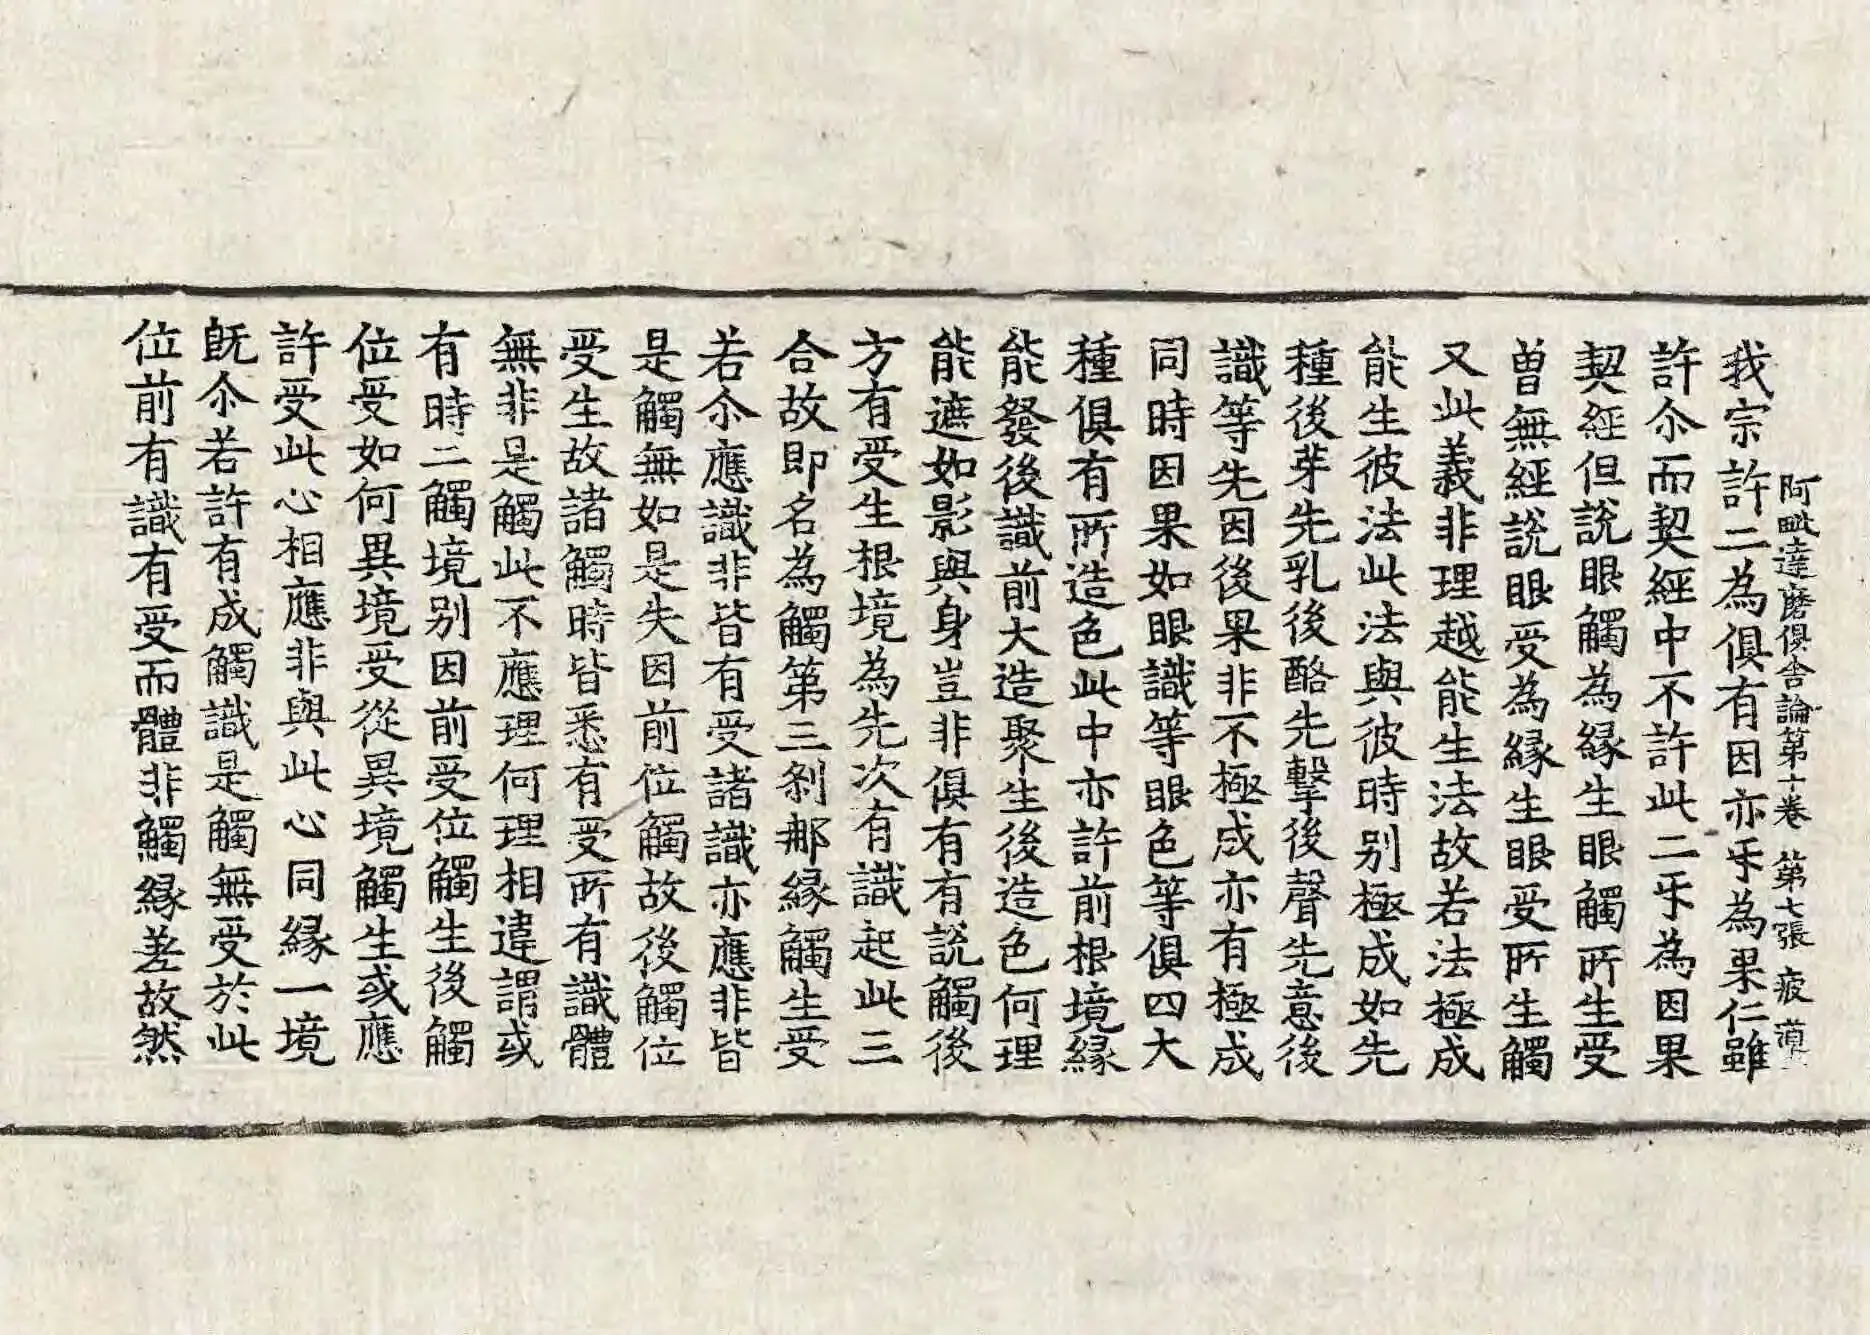 阿毗達磨俱舍論第十卷 第七張 疲
我宗許二為俱有因亦𢆯為果仁雖
許尒而契經中不許此二𢆯為因果
契經但說眼觸為緣生眼觸所生受
曾無經說眼受為緣生眼受所生觸
又此義非理越能生法故若法極成
能生彼法此法與彼時別極成如先
種後芽先乳後酪先擊後聲先意後
識等先因後果非不極成亦有極成
同時因果如眼識等眼色等俱四大
種俱有所造色此中亦許前根境緣
能發後識前大造聚生後造色何理
能遮如影與身豈非俱有有說觸後
方有受生根境為先次有識起此三
合故即名為觸第三剎那緣觸生受
若尒應識非皆有受諸識亦應非皆
是觸無如是失因前位觸故後觸位
受生故諸觸時皆悉有受所有識體
無非是觸此不應理何理相違謂或
有時二觸境別因前受位觸生後觸
位受如何異境受從異境觸生或應
許受此心相應非與此心同緣一境
旣尒若許有成觸識是觸無受於此
位前有識有受而體非觸緣差故然